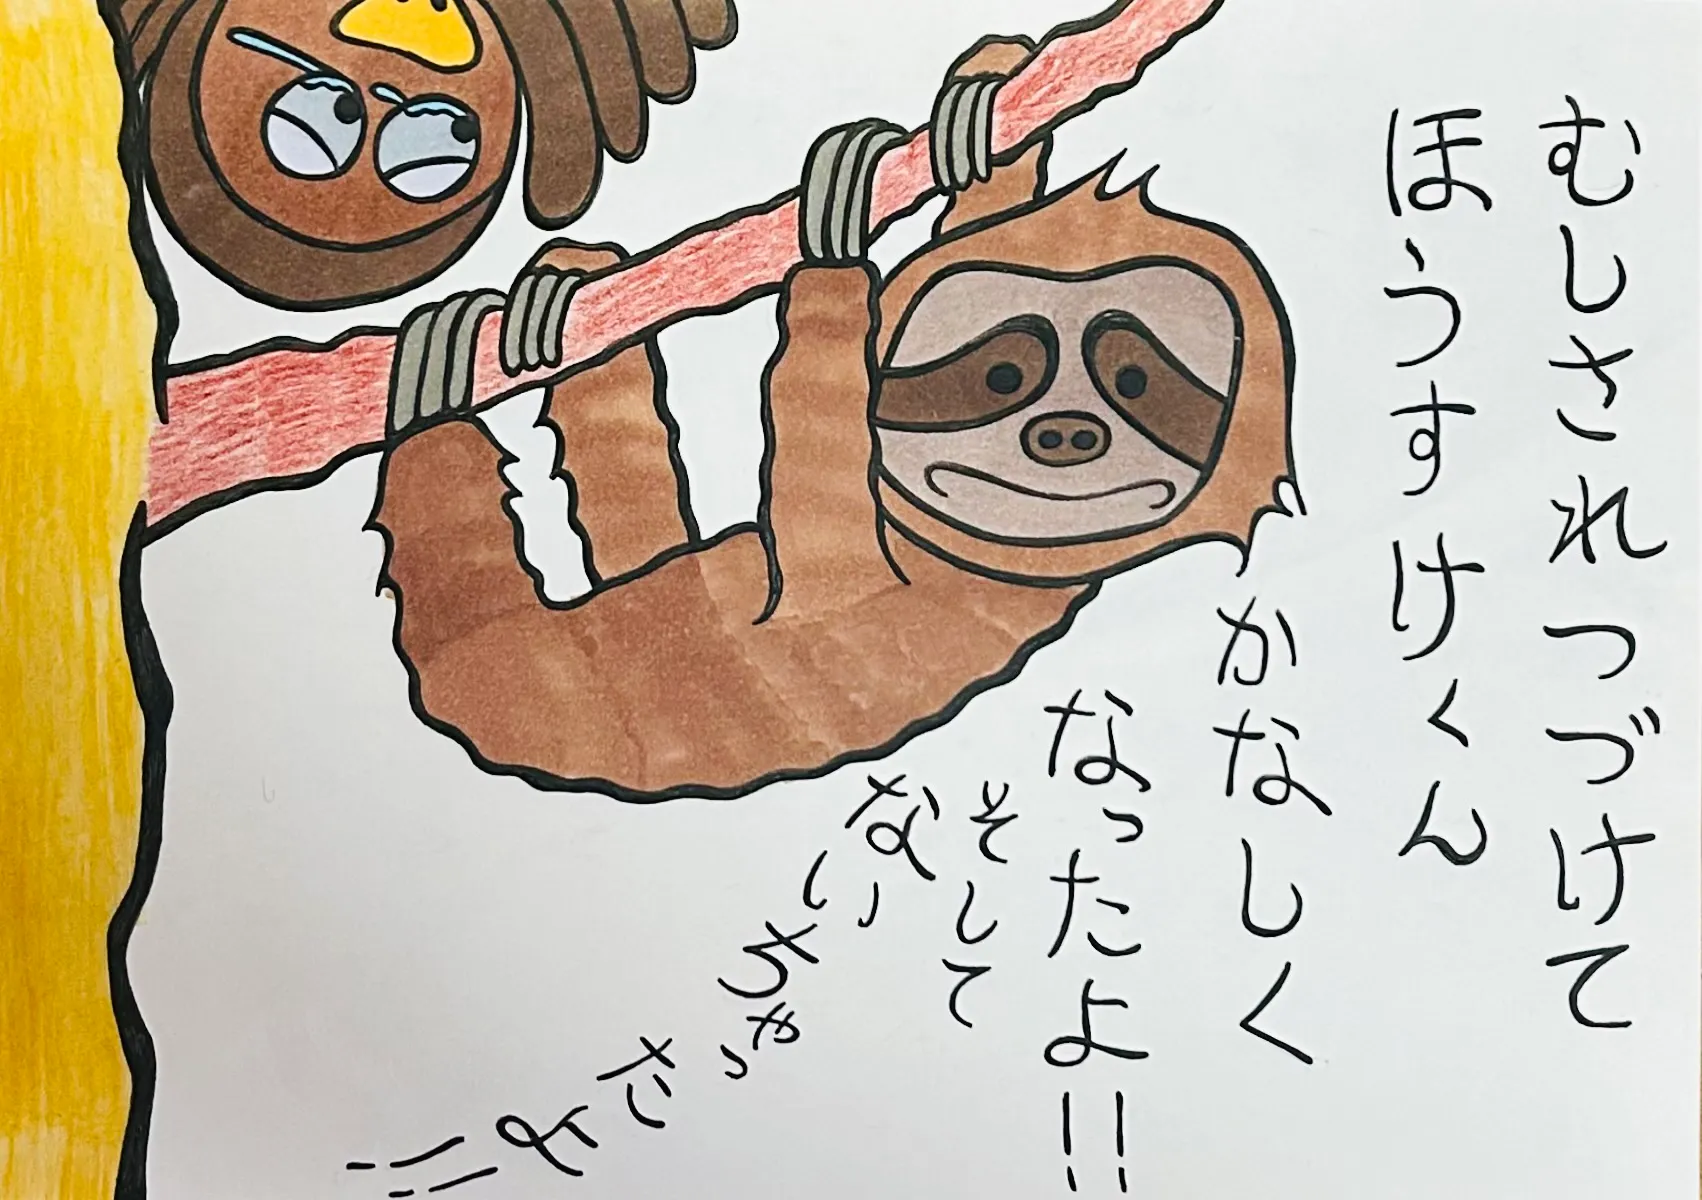 むしされつづけて
ほうすけくん
かなしく
なったよ!!
そして
ないちゃったよ!!